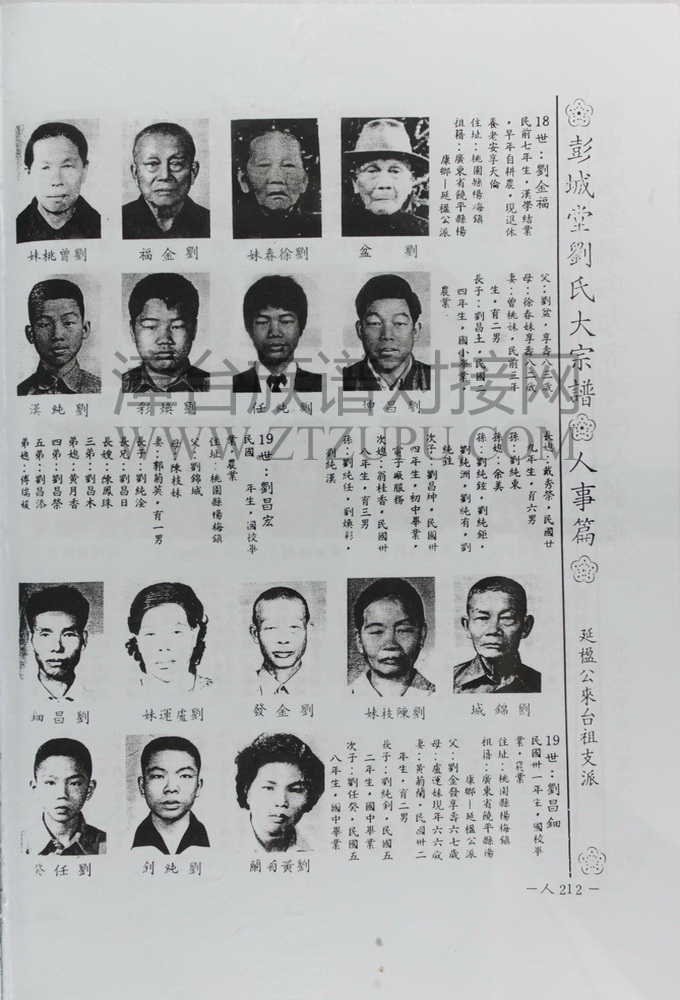 彭城堂劉氏大宗譜
人事篇
延楹公來台祖支派
18世：劉金福
民前七年生，漢學結業
，早年自耕農，現退休
養老安享天倫
住址：桃園縣楊梅鎮
祖籍：廣東省饒平縣楊
康鄉—延楹公派
劉 盆
劉徐春妹
劉金福
劉曾桃妹
父：劉盆，享壽八三歲
母：徐春妹享壽八二歲
妻：曾桃妹，民前三年
生，育二男
長子：劉昌土，民國二
四年生，國小畢業，
農業
劉昌坤
劉純任
劉煥彩
劉純漢
長媳：戴秀榮，民國廿
九年生，育六男
孫：劉純東
孫媳：余美
孫：劉純銓，劉純鉅，
劉純洲，劉純有，劉
純鉎
次子：劉昌坤，民國卅
四年生，初中畢業，
電子廠服務
次媳：翁桂香，民國卅
八年生，育三男
孫：劉純任，劉煥彩，
劉純漢
19世：劉昌宏
民國 年生，國校畢
業，農業
住址：桃園縣楊梅鎮
父：劉錦城
母：陳枝妹
妻：郭菊英，育一男
長子：劉純淦
長兄：劉昌日
長嫂：陳鳳珠
三弟：劉昌木
弟媳：黃月香
四弟：劉昌榮
五弟：劉昌添
弟媳：傅瑞媛
劉錦城
劉陳枝妹
劉金發
劉盧運妹
劉昌鈿
19世：劉昌鈿
民國卅一年生，國校畢
業，農業
住址：桃園縣楊梅鎮
祖籍：廣東省饒平縣楊
康鄉—延楹公派
父：劉金發享壽六七歲
母：盧運妹現年六六歲
妻：黃菊蘭，民國卅二
年生，育二男
長子：劉純釗，民國五
二年生，國中畢業
次子：劉任葵，民國五
八年生，國中畢業
劉黃菊蘭
劉純釗
劉任葵
—人212—
漳台族谱对接网
WWW.ZTZUPU.COM